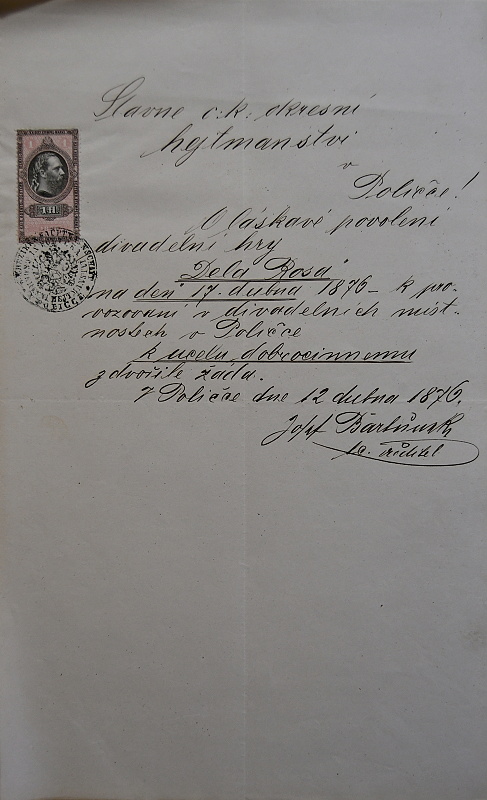 Slavné c. k. okresní
hejtmanství
v
Poličce!
O láskavé povolení
divadelní hry
"Dela Rosa"
na den 17. dubna 1876 – k pro
vozování v divadelních míst
nostech v Poličce
k účelu dobročinnému
zdvořile žádá.
V Poličce dne 12 dubna 1876.
Josef
ředitel